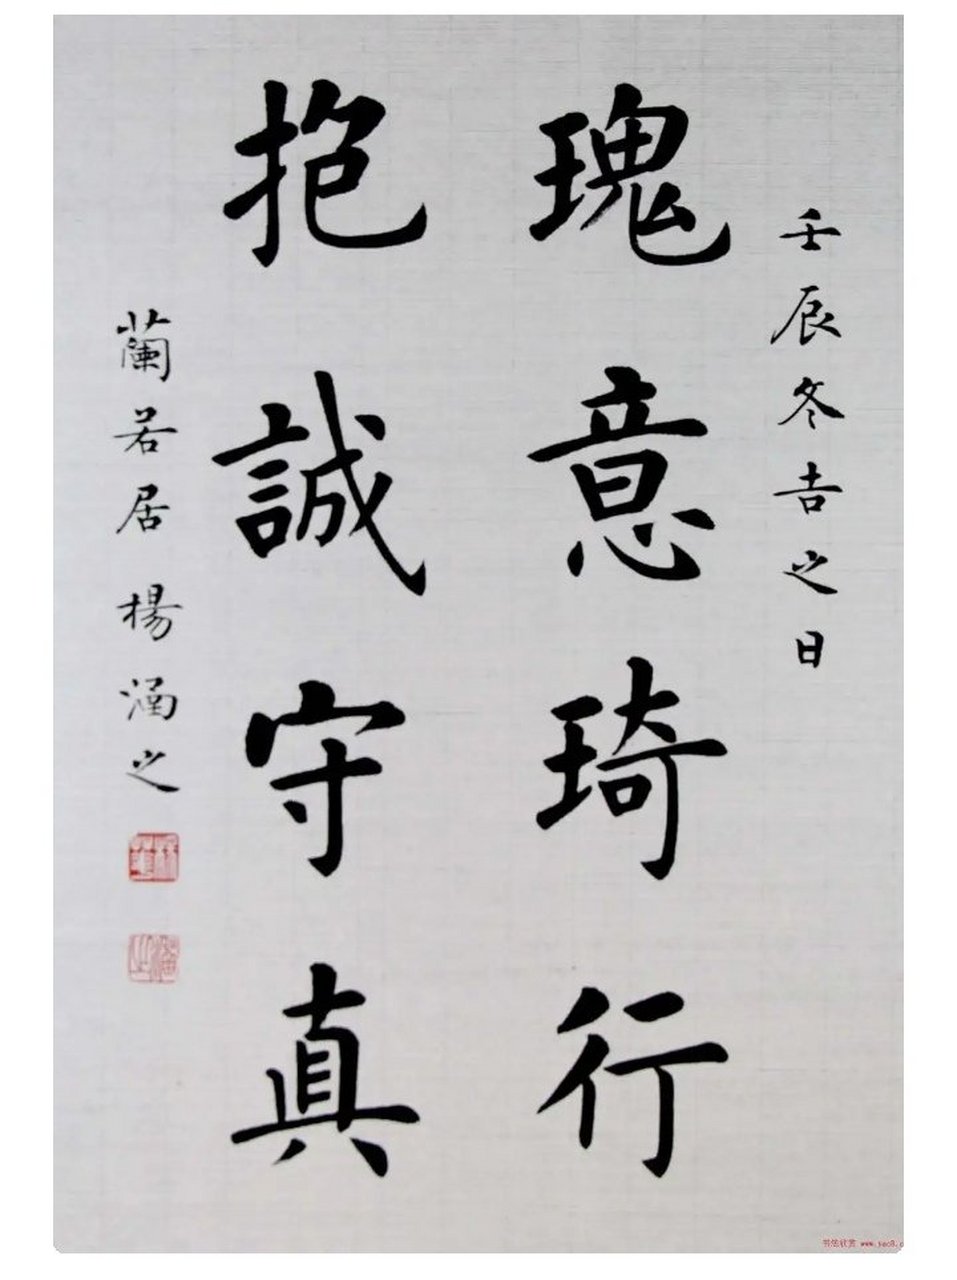 壬辰冬吉之日
瑰意琦行
抱誠守真
蘭若居楊涵之
书法欣赏 www.yac8.c